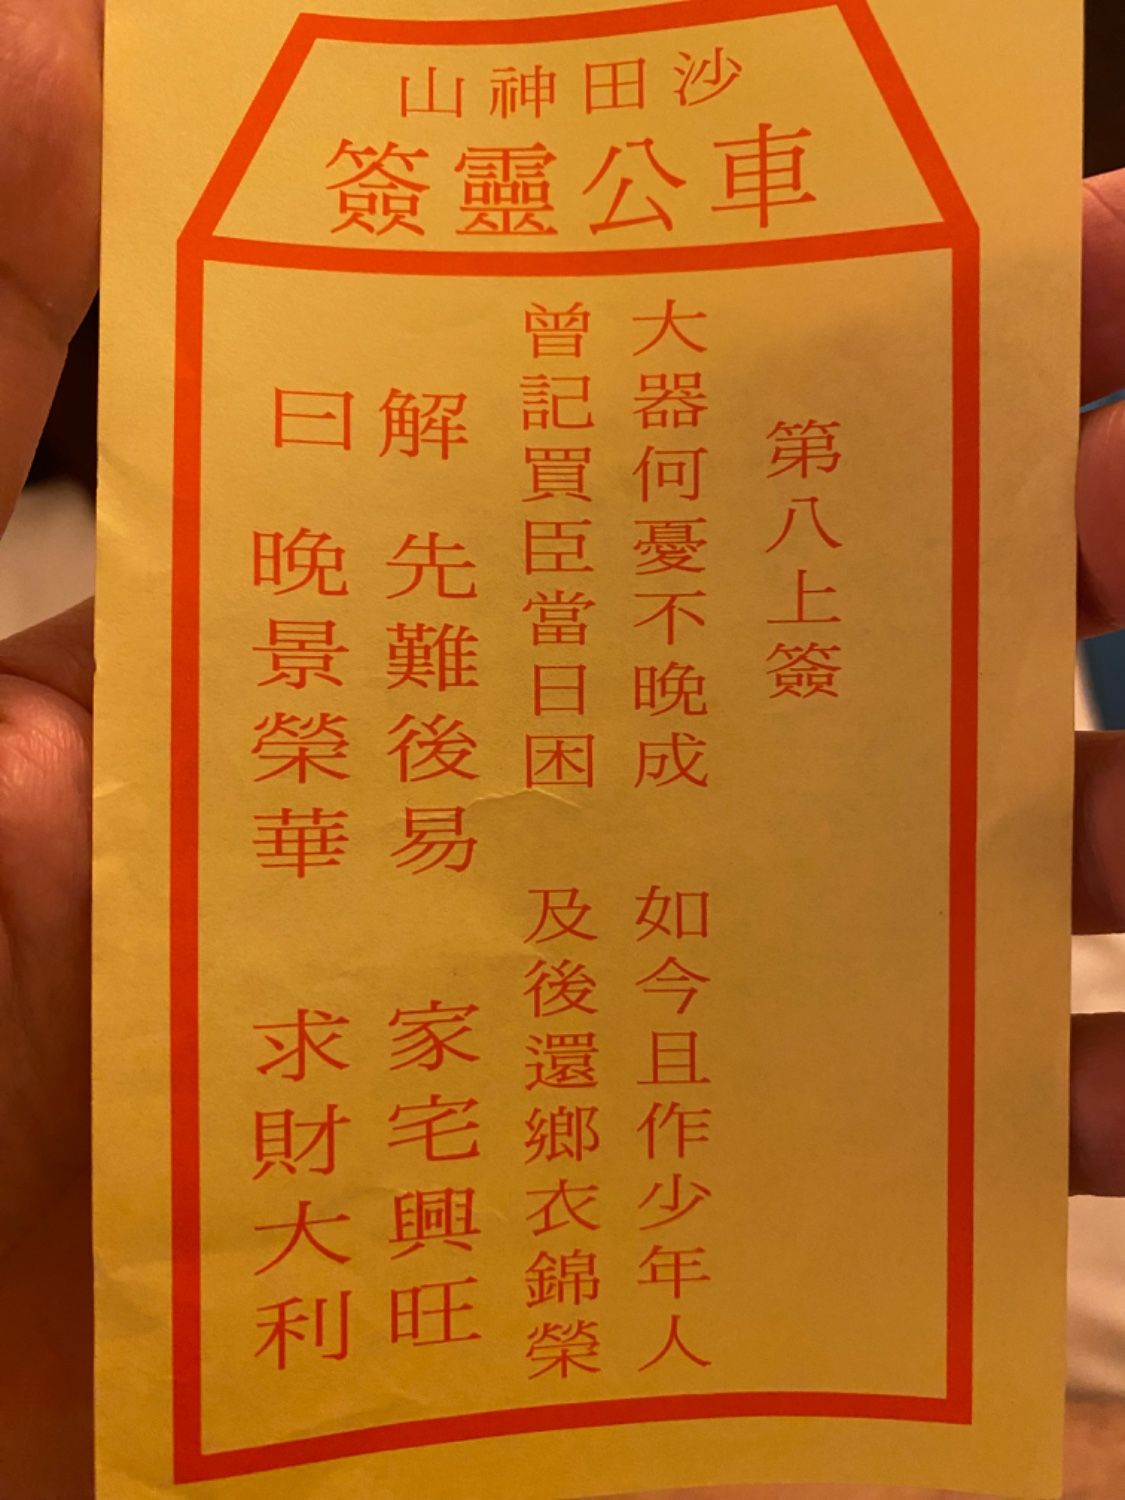 沙田神山
車公靈簽
第八上簽
大器何憂不晚成 如今且作少年人
曾記買臣當日困 及後還鄉衣錦榮
解 先難後易 家宅興旺
曰 晚景榮華 求財大利